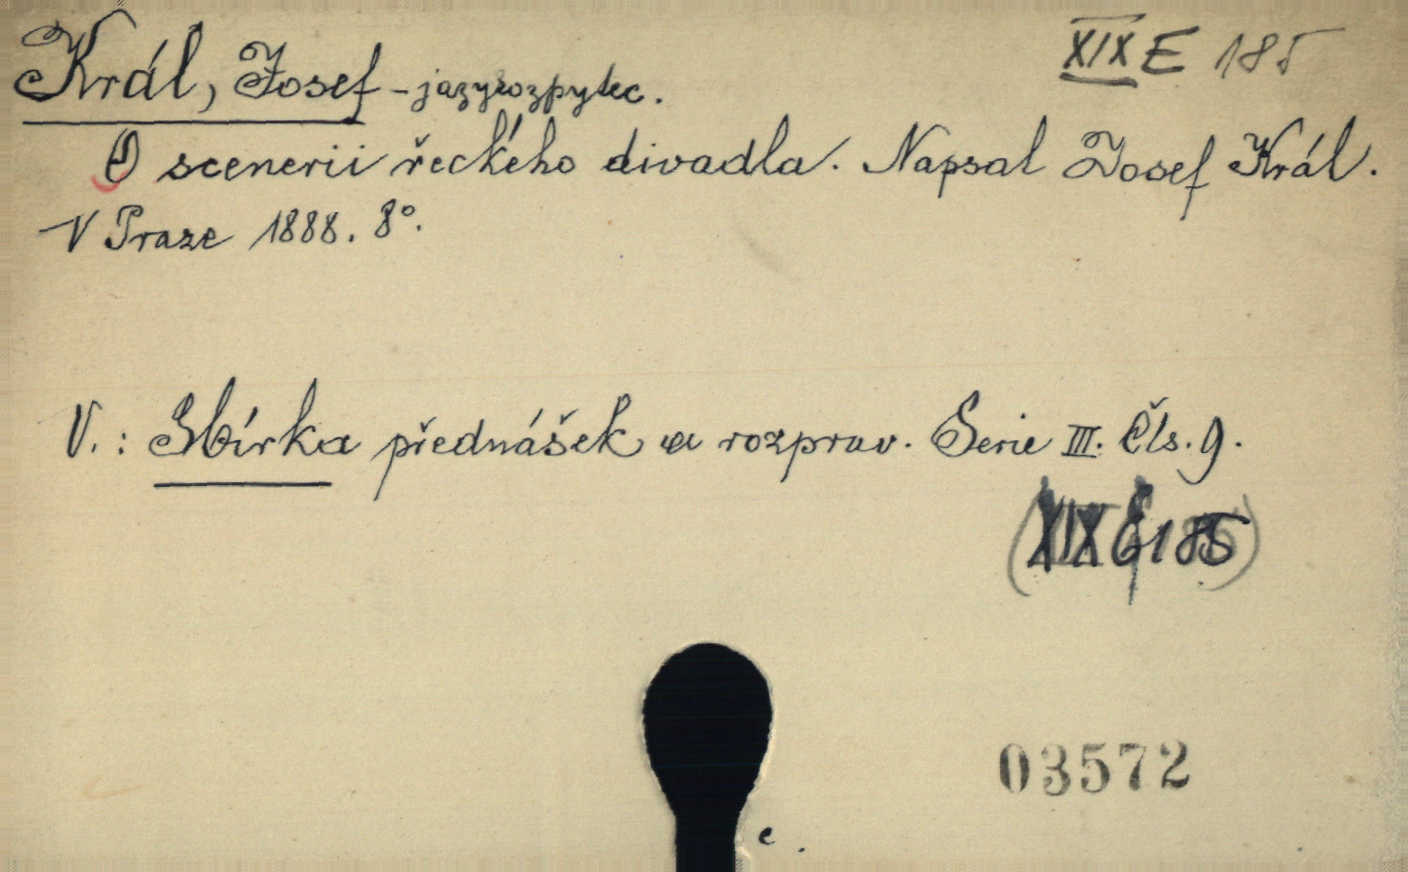 Král, Josef - jazykozpytec. XIX E 185
O scenerii řeckého divadla. Napsal Josef Král.
V Praze 1888. 8°.
V.: Sbírka přednášek a rozprav. Serie III. Čís. 9.
(XIX E 185)
03572